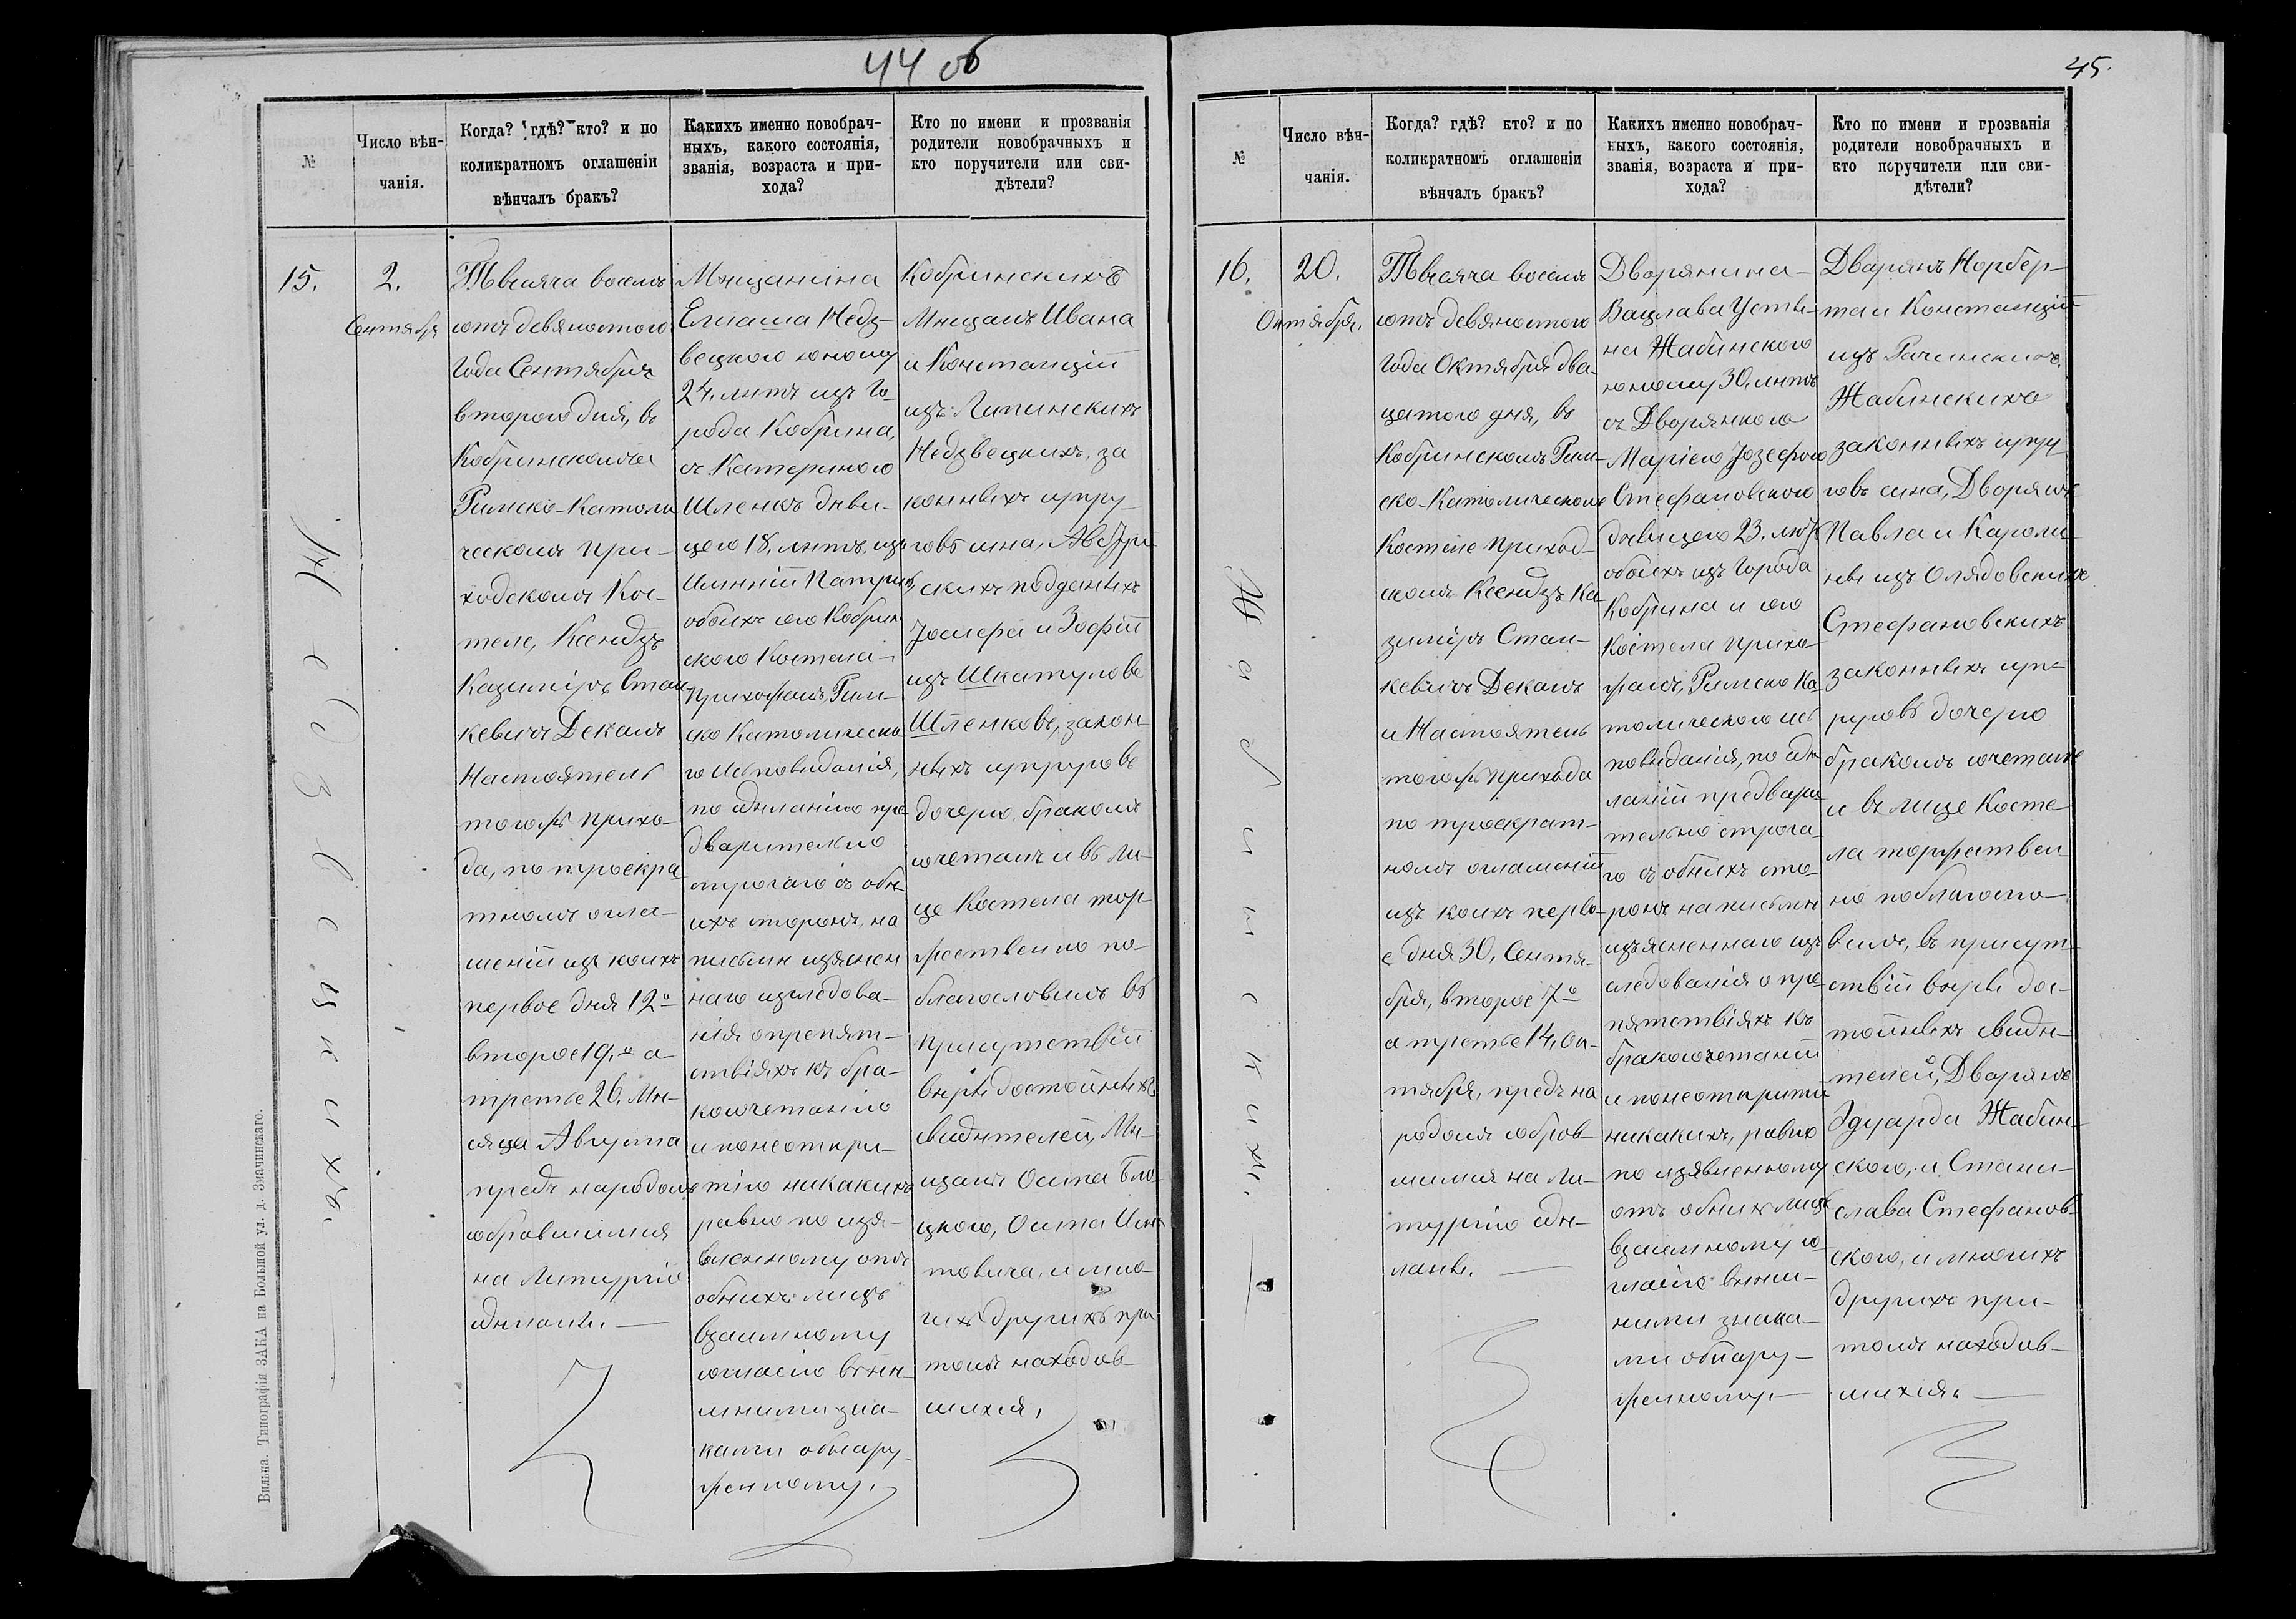 44 об
№
Число вѣн-
чанія.
Когда? гдѣ? кто? и по
коликратномъ оглашеніи
вѣнчалъ бракъ?
Какихъ именно новобрач-
ныхъ, какого состоянія,
званія, возраста и при-
хода?
Кто по имени и прозванія
родители новобрачныхъ и
кто поручители или сви-
дѣтели?
15.
2.
Сентября
Тысяча восемь
сотъ девяностого
Года Сентября
второго дня, въ
Кобринскомъ
Римско-Католи
ческомъ При-
ходскомъ Кос-
теле, Ксендзъ
Казимiръ Стан
кевичъ Деканъ
Настоятель
тогожъ прихо-
да, по троекра
тномъ огла-
шеній изъ коихъ
первое дня 12о
второе 19.о а-
третье 26. Мѣ-
сяца Августа
предъ народомъ
собравшимся
на Литургію
сдѣланы.
Мѣщанина
Елиаша Недз-
вецкого юношу
24. лѣтъ изъ Го-
рода Кобрина,
съ Катериною
Шленкъ дѣви-
цею 18. лѣтъ, изъ
Имѣній Патрики
обоихъ сего Кобрин
ского Костела
Прихожанъ, Рим-
ско Католическа
го Исповѣданія,
по сдѣланію пре
дварително
строгаго съ обѣ-
ихъ сторонъ, на
письмѣ изяснен
наго изследова-
нія о препят-
ствіяхъ къ бра-
косочетанію
и по неоткри-
тію никакихъ
равно по изя-
вленному отъ
обѣихъ лицъ
взаимному
согласію внѣ-
шними зна-
ками обнару-
женному.
Кобринскихъ
Мѣщанъ Ивана
и Констанціи
изъ Липинскихъ
Недзвецкихъ, за
конныхъ супру-
говъ сына, Австрій-
скихъ подданныхъ
Іосифа и Зофіи
изъ Шкатуловъ
Шленковъ, закон-
ныхъ супруговъ
дочерю, бракомъ
сочеталъ и въ ли-
це Костела тор-
жественно по-
благословилъ въ
присутствіи
вѣры достойныхъ
свидѣтелей, Мѣ-
щанъ Осипа Бло-
цкого, Осипа Игна
товича, и мно-
гихъ другихъ при
томъ находив-
шихся.
Недзвецкихъ.
Вильна. Типографія ЗАКА на Большой ул. д. Змачинскаго.
45.
№
Число вѣн-
чанія.
Когда? гдѣ? кто? и по
коликратномъ оглашеніи
вѣнчалъ бракъ?
Какихъ именно новобрач-
ныхъ, какого состоянія,
званія, возраста и при-
хода?
Кто по имени и прозванія
родители новобрачныхъ и
кто поручители или сви-
дѣтели?
16.
20.
Октября.
Тысяча восемь
сотъ девяностого
года Октября два-
цатого дня, въ
Кобринскомъ Рим-
ско-Католическомъ
Костеле Приход-
скомъ Ксендзъ Ка-
зимiръ Стан-
кевичъ Деканъ
и Настоятель
тогожъ Прихода
по троекрат-
номъ оглашеній
изъ коихъ перво-
е дня 30. Сентя-
бря, второе 7о
а третье 14. Ок-
тября, предъ на
родомъ собрав-
шимся на Ли-
тургію сдѣ-
ланы.
Дворянина
Вацлава Усты-
на Жабинского
юношу 30. лѣтъ
съ Дворянкою
Маріею Іозефою
Стефановскою
дѣвицею 23. лѣтъ
обоихъ изъ Города
Кобрина и сего
Костела прихо-
жанъ, Римско Ка
толического ис-
повѣданія, по сдѣ
ланій предвари
тельно строга-
го съ обѣихъ сто-
ронъ на письмѣ
изъясненнаго из-
следованія о пре-
пятствіяхъ къ
бракосочетаній
и по неоткритію
никакихъ, равно
по изявленному
отъ обѣихъ лицъ
взаимному со-
гласію внѣш-
ними знака-
ми обнару-
женному
Дворянъ Норбер-
та и Констанціи
изъ Рачинскихъ
Жабинскихъ
законныхъ супру
говъ сына, Дворянъ
Павла и Кароли-
ны изъ Олядовскихъ
Стефановскихъ
законныхъ суп-
руговъ дочерю
бракомъ сочеталъ
и въ лице Косте
ла торжествен-
но поблагосло-
вилъ, въ присут-
ствіи вѣры дос-
тойныхъ свидѣ-
телей, Дворянъ
Эдуарда Жабин-
ского, и Стани-
слава Стефанов-
ского, и многихъ
другихъ при-
томъ находив-
шихся.
Жабинскихъ.